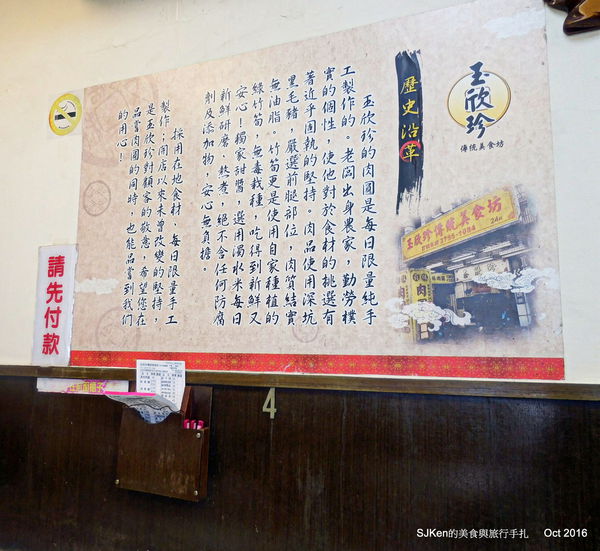 玉欣珍
傳統美食坊
歷史沿革
玉欣珍的肉圓是每日限量純手
工製作的。老闆出身農家，勤勞樸
實的個性，使他對於食材的挑選有
著近乎固執的堅持。肉品使用深坑
黑毛豬，嚴選前腿部位，肉質結實
無油脂。竹筍更是使用自家種植的
綠竹筍，無毒栽種，吃得到新鮮又
安心！獨家甜醬，選用濁水米每日
新鮮研磨、熬煮，絕不含任何防腐
劑及添加物，安心無負擔。
採用在地食材、每日限量手工
製作；開店以來未曾改變的堅持，
是玉欣珍對顧客的敬意，希望您在
品嘗肉圓的同時，也能品嘗到我們
的用心！
玉欣珍傳統美食坊
肉
請先付款
4
SJKen的美食與旅行手扎 Oct 2016